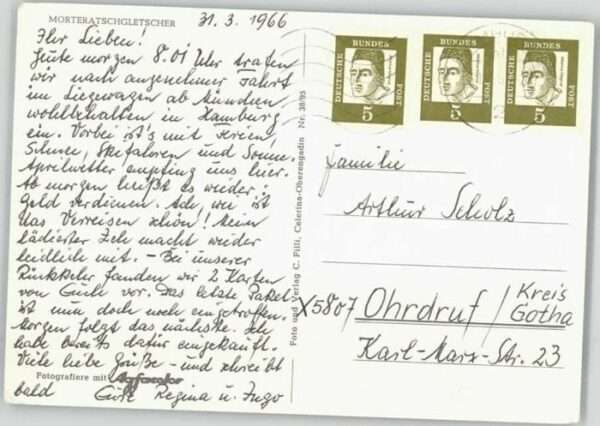 MORTERATSCHGLETSCHER
31.3.1966
Ihr Lieben!
Heute morgen 8.01 Uhr trafen
wir nach angenehmer Fahrt
im Liegewagen ab München
wohlbehalten in Hamburg
ein. Vorbei ist's mit Ferien,
Schnee, Skifahren und Sonne.
Aprilwetter empfing uns hier.
Ab morgen heißt es wieder:
Geld verdienen. Ach, wie ist
das Verreisen schön! Mein
lädierter Zeh macht wieder
leidlich mit. – Bei unserer
Rückkehr fanden wir 2 Karten
von Euch vor. Das letzte Paket
ist nun doch noch eingetroffen.
Morgen folgt das nächste. Ich
habe bereits dafür eingekauft.
Viele liebe Grüße – und schreibt
bald Eure Regina u. Ingo
Fotografiere mit Agfacolor
Foto und Verlag C. Filli, Celerina-Oberengadin Nr. 38/95
DEUTSCHE BUNDES POST 5
DEUTSCHE BUNDES POST 5
DEUTSCHE BUNDES POST 5
Familie
Arthur Scholz
X5807 Ohrdruf / Kreis Gotha
Karl-Marx-Str. 23